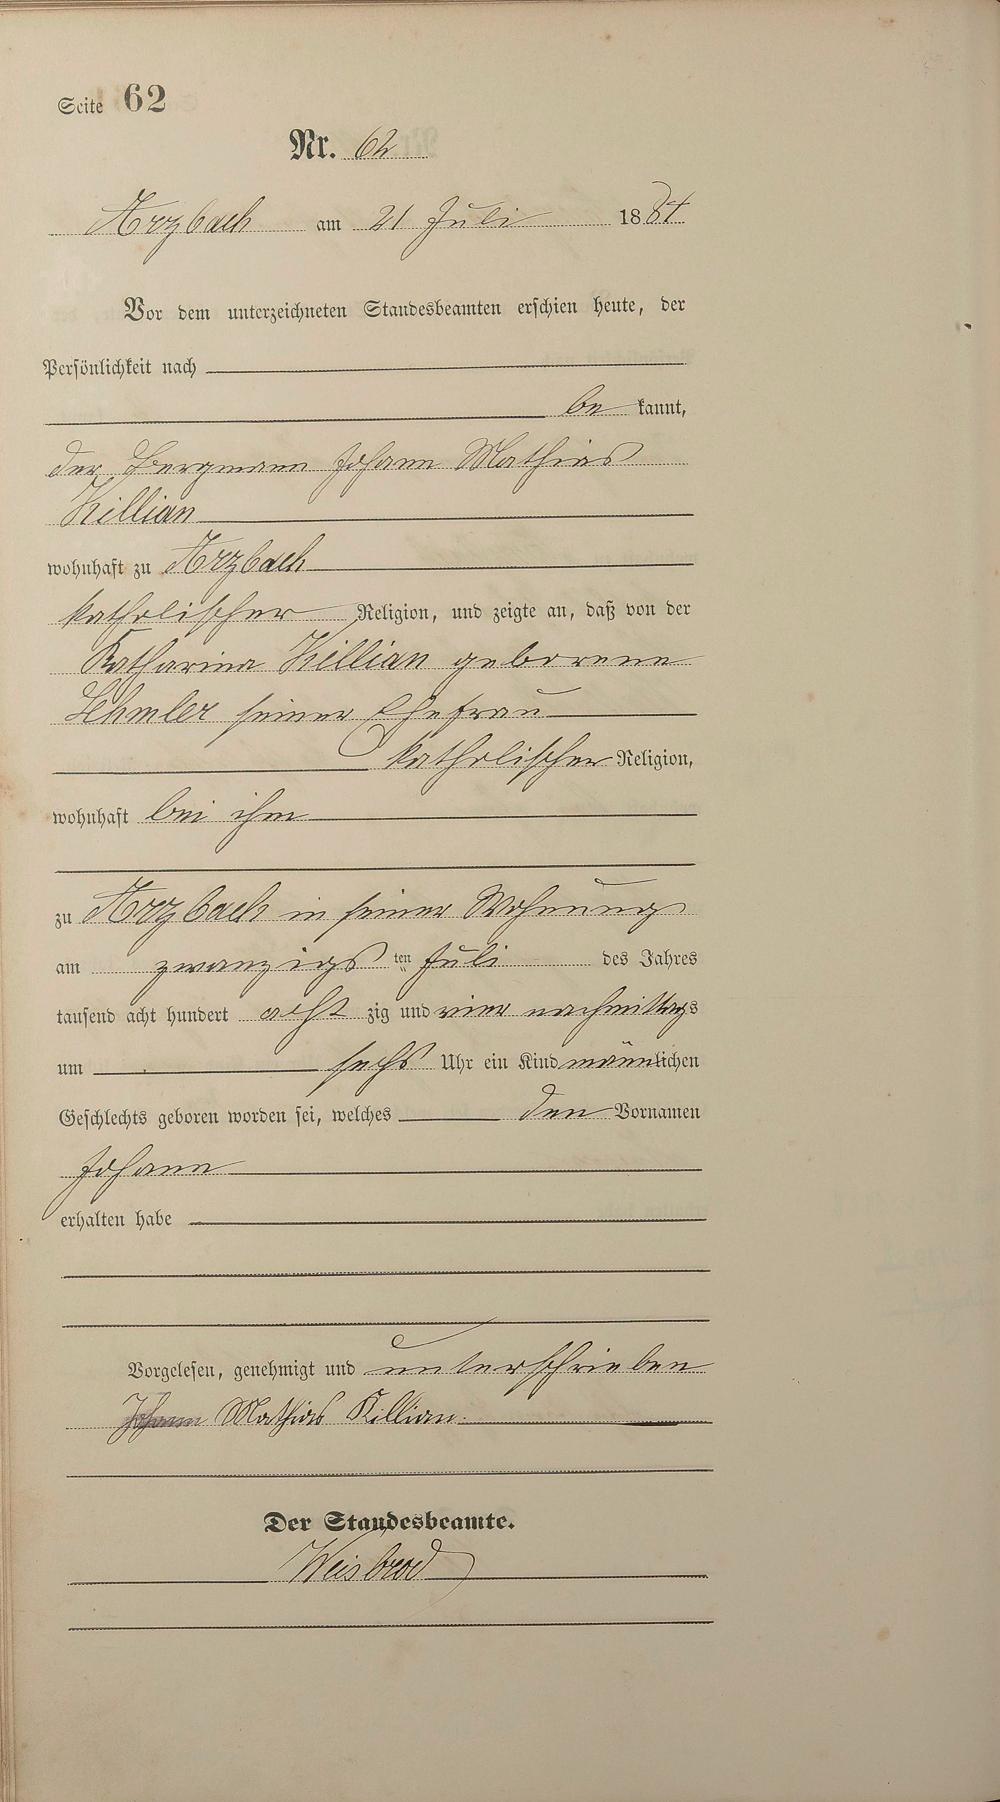 Seite 62
Nr. 62
Arzbach am 21 Juli 1884
Vor dem unterzeichneten Standesbeamten erschien heute, der
Persönlichkeit nach
be kannt,
der Bergmann Johann Mathias
Killian
wohnhaft zu Arzbach
katholischer Religion, und zeigte an, daß von der
Katharina Killian geborene
Lehmler seiner Ehefrau
katholischer Religion,
wohnhaft bei ihm
zu Arzbach in seiner Wohnung
am zwanzigsten Juli des Jahres
tausend acht hundert acht zig und vier nachmittags
um sechs Uhr ein Kind männlichen
Geschlechts geboren worden sei, welches den Vornamen
Johann
erhalten habe
Vorgelesen, genehmigt und unterschrieben
Johann Mathias Killian.
Der Standesbeamte.
Weisbrod